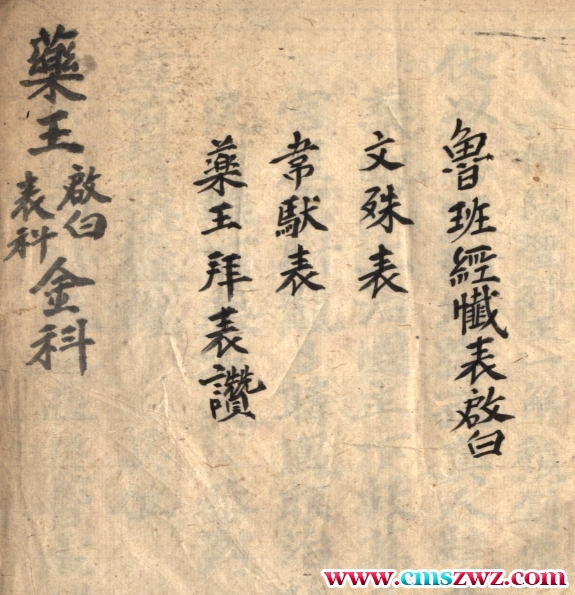 魯班經懺表啟白
文殊表
韋馱表
藥王拜表讚
藥王啟白表科金科
www.cmszwz.com